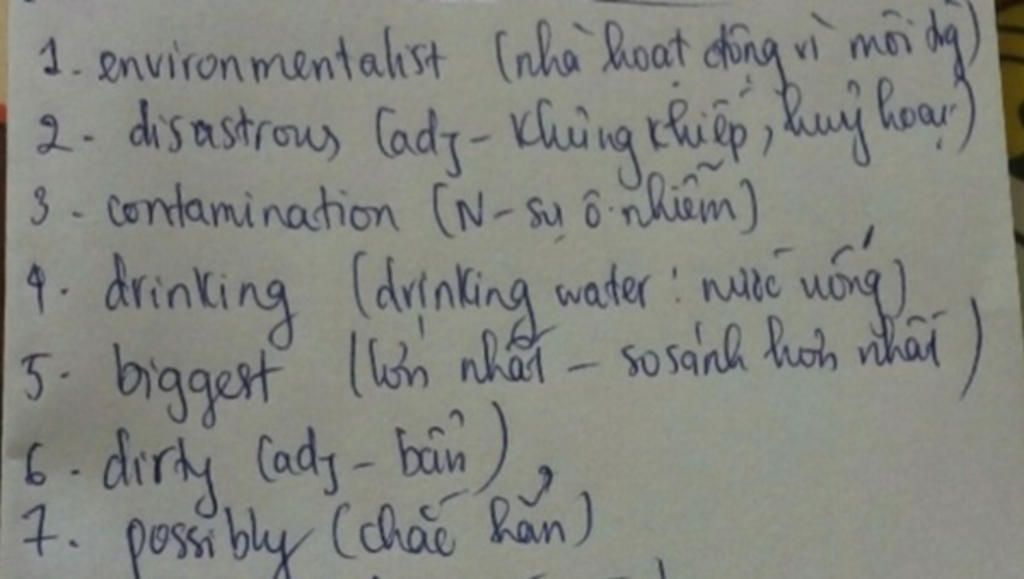 1. environmentalist (nhà hoạt động vì môi trg)
2 - disastrous (adj - khủng khiếp, huỷ hoại)
3 - contamination (N - sự ô nhiễm)
4. drinking (drinking water : nước uống)
5. biggest (lớn nhất - so sánh hơn nhất)
6 - dirty (adj - bẩn)
7. possibly (chắc hẳn)